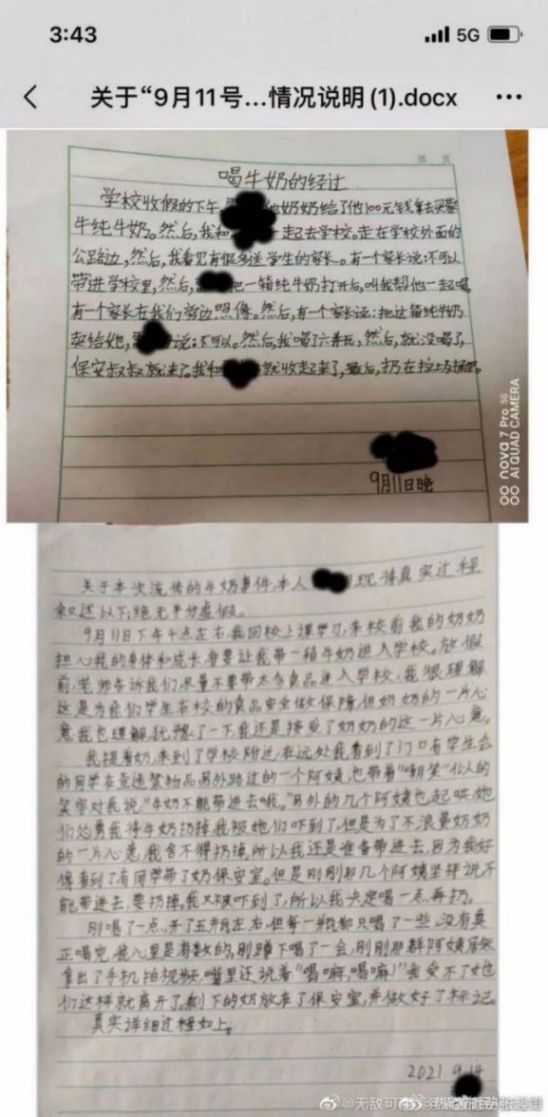 3:43
5G
关于“9月11号...情况说明(1).docx
喝牛奶的经过
学校收假的下午 他奶奶给了他100元钱拿去买蒙
牛纯牛奶。然后,我和 一起去学校。走在学校外面的
公路边,然后,我看见有很多送学生的家长。有个家长说:不可以
带进学校里,然后, 把一箱纯牛奶打开后,叫我帮他一起喝
有一个家长在我们旁边照像。然后,有一个家长说:把这箱纯牛奶
卖给她, 说:不可以。然后,我喝了六 瓶,然后,就没喝了,
保安叔叔就来了。我和 就收起来了,最后,扔在垃圾桶里。
9月11日晚
nova 7 Pro 5G
AI QUAD CAMERA
关于本次流传的牛奶事件,本人 现 将真实过程
叙述以下,绝无半分虚假。
9月11日下午 点左右,我回校上课学习,来校前我的奶奶
担心我的身体和成长 要让我带一箱牛奶进入学校。放假
前,老师告诉我们尽量不要带太多食品进入学校,我很理解
这是为我们学生在校的食品安全做保障,但奶奶的一片心
意我也理解,犹豫了一下我还是接受了奶奶的这一片心意。
我提着奶,来到了学校附近,在远处我看到了门口有学生会
的同学在 查违禁物品另外路过的一个阿姨,也带着“嘲笑” 人的
笑容对我说,“牛奶不能带进去哦。”另外的几个阿姨也起哄,她
们怂勇我将牛奶扔掉,我被她们吓到了,但是为了不浪费奶奶
的一片心意,我舍不得扔掉,所以我还是准备带进去,因为我好
像看到了有同学带了奶保安室。但是刚刚那几个阿姨坚持说不
能带进去,要扔掉,我又被吓到了,所以我决定喝一点再扔。
刚喝了一点,开了五瓶左右,但每一瓶都只喝了一些,没有真
正喝完,我心里是有数的。刚蹲下喝了一会,刚刚那群阿姨居然
拿出了手机拍视频,嘴里还说着“喝嘛,喝嘛!”我受不了她
们这样就离开了。剩下的奶放在了保安室,并做好了标记。
真实详细过程如上。
2021.9.14
@无敌可